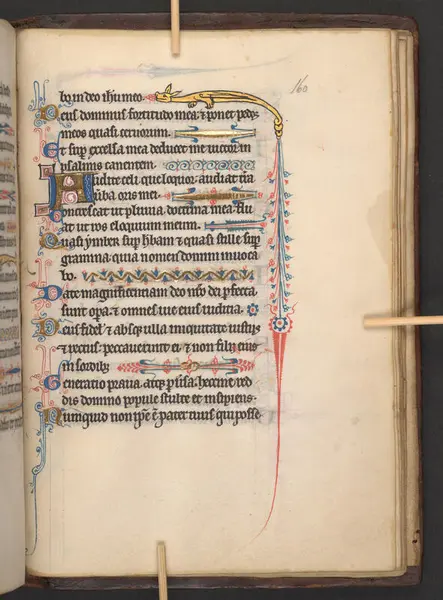 160
bo in deo ihu meo.
Deus dominus fortitudo mea: & ponet pedes
meos quasi ceruorum.
Et sup excelsa mea deducet me uictor in
psalmis canentem.
Audite celi que loquor: audiat t̄ra
uerba oris mei.
Concrescat ut pluuia doctrina mea: flu
at ut ros eloquium meum.
Quasi ymber sup h̄bam & quasi stille sup
gramina: quia nomen domini inuoca
bo.
Date magnificenciam deo nr̄o: dei p̄fecta
sunt oꝑa: & omnes uie eius iudicia.
Deus fidel' & absq; ulla iniquitate iustus
& rectus: peccauerunt ei & non filii eius
in sordib;
Generatio praua atq; ꝑu̓sa: heccine red
dis domino popule stulte et insipiens.
Nunquid non ip̄e ē pater tuus qui posse